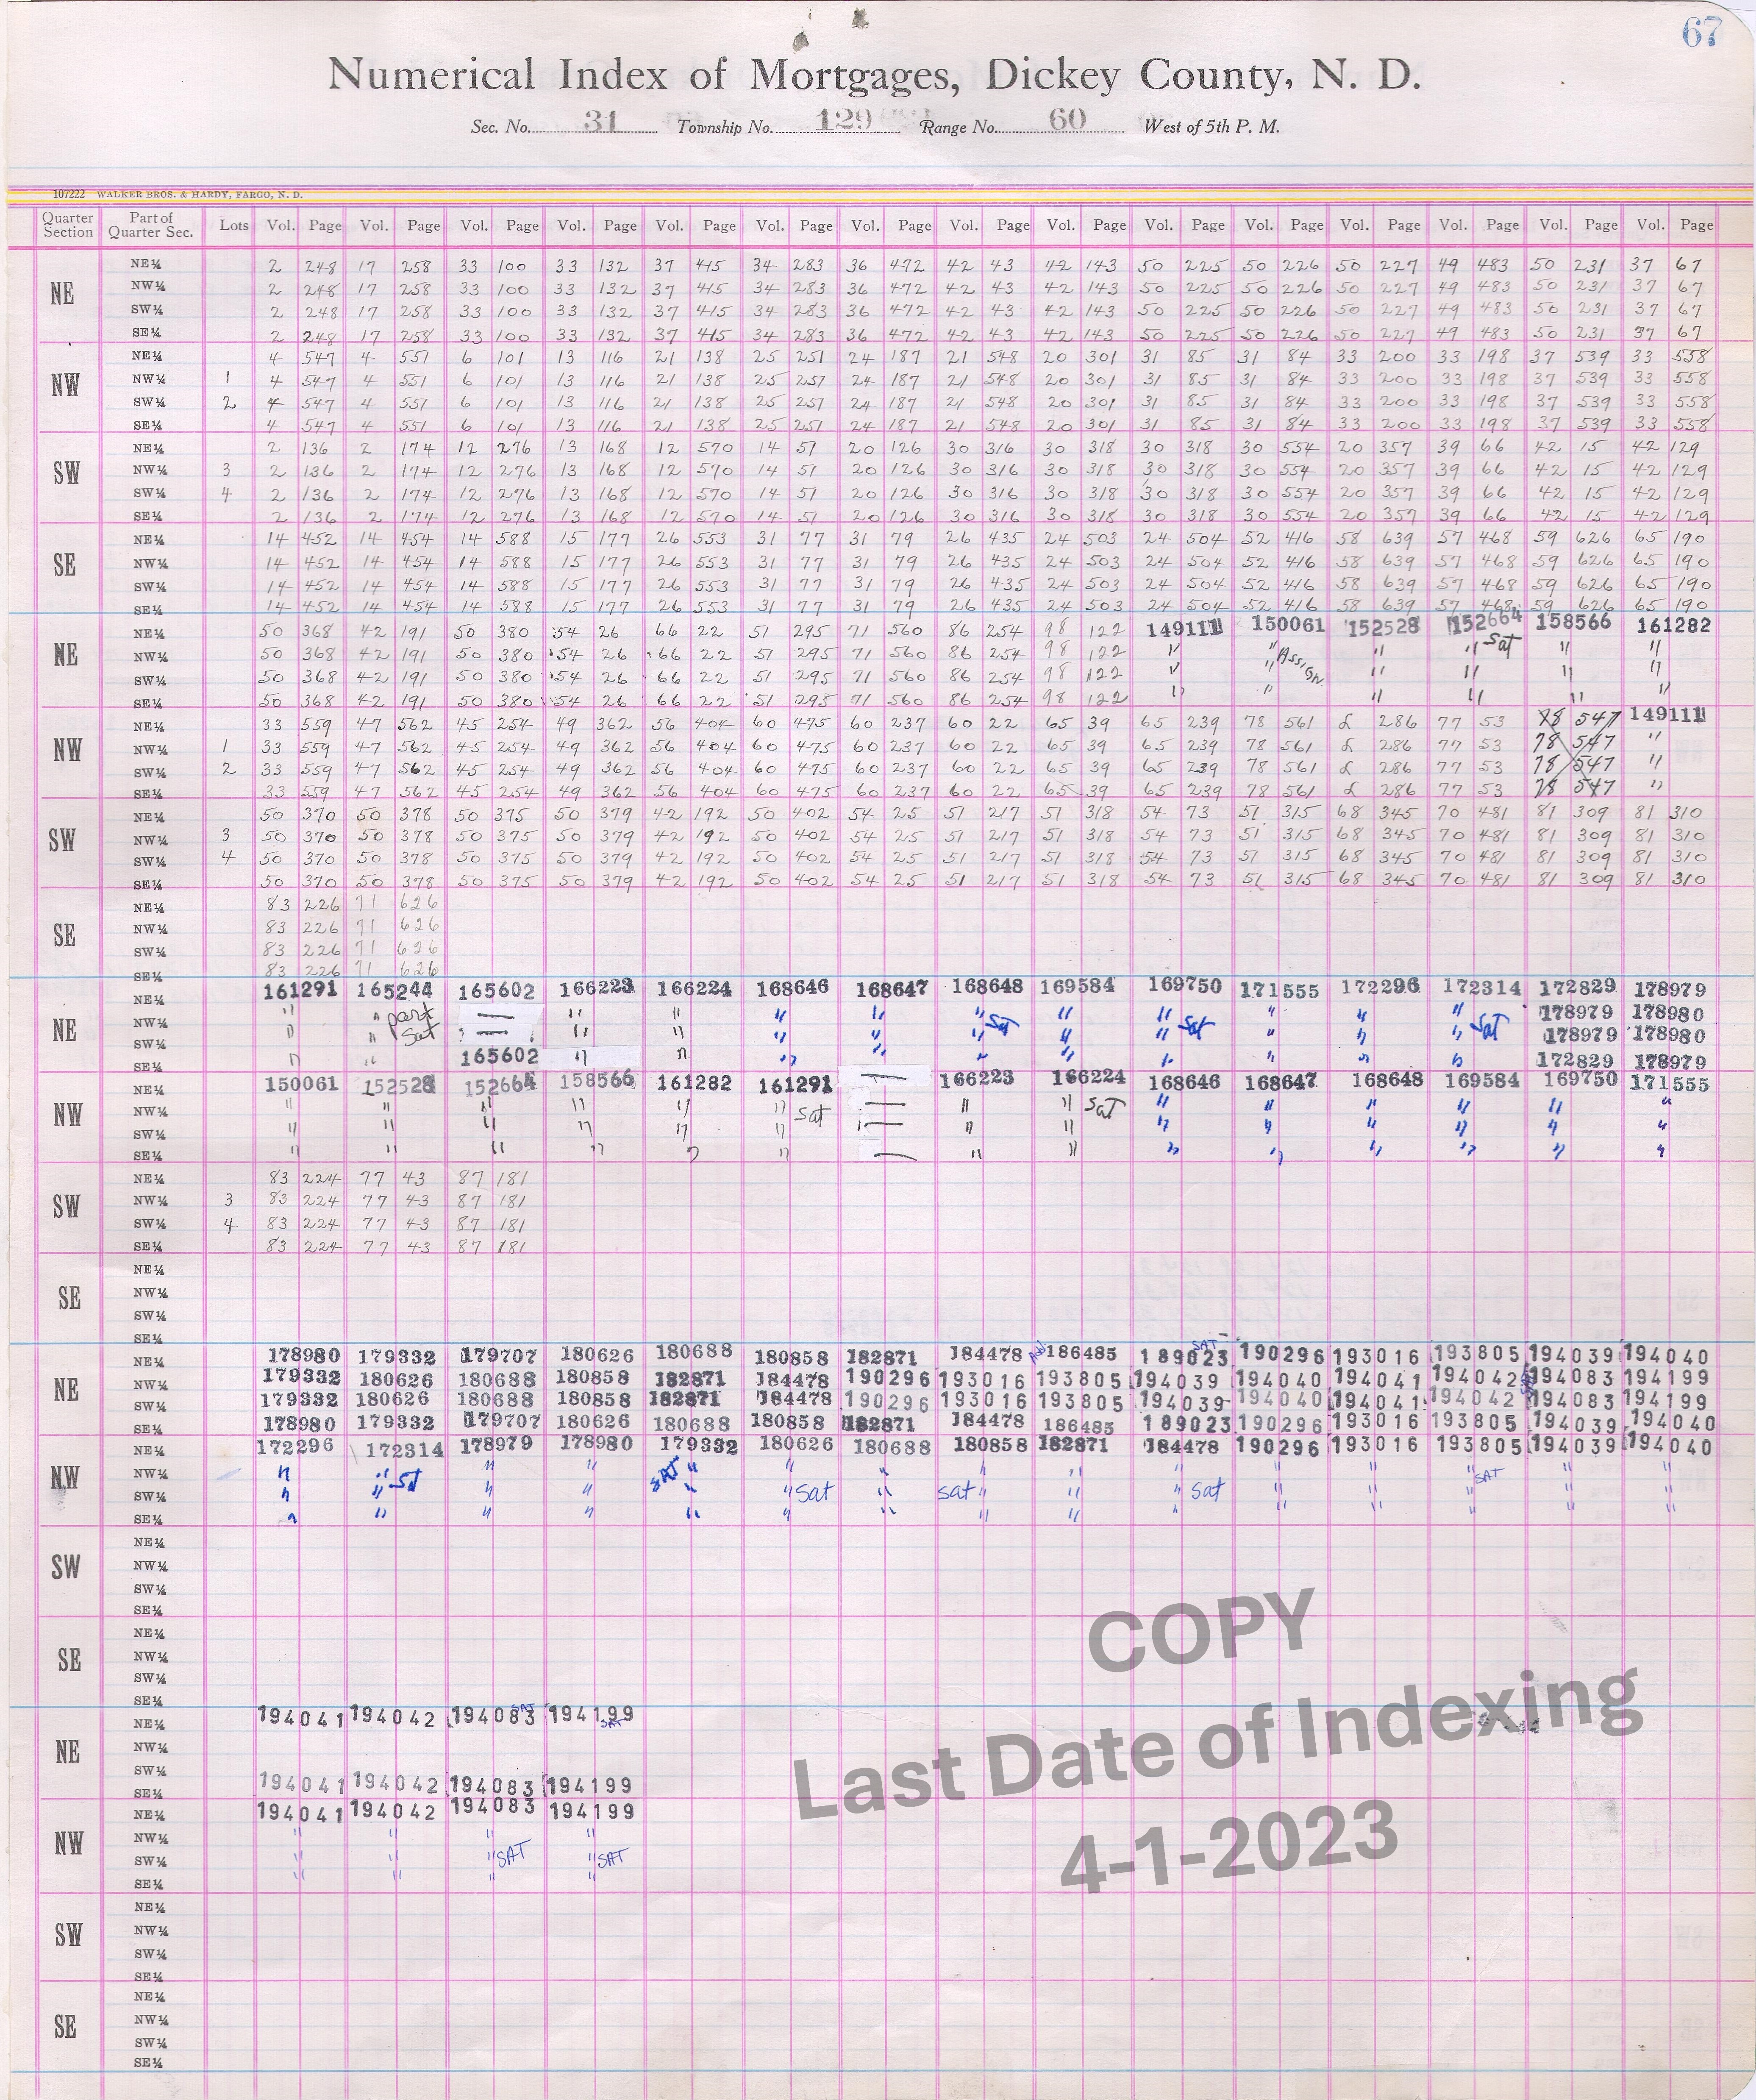 67
Numerical Index of Mortgages, Dickey County, N. D.
Sec. No. 31 Township No. 129 Range No. 60 West of 5th P. M.
107222 WALKER BROS. & HARDY, FARGO, N. D.
Quarter Section Part of Quarter Sec. Lots Vol. Page Vol. Page Vol. Page Vol. Page Vol. Page Vol. Page Vol. Page Vol. Page Vol. Page Vol. Page Vol. Page Vol. Page Vol. Page Vol. Page Vol. Page
NE
NE¼ 2 248 17 258 33 100 33 132 37 415 34 283 36 472 42 43 42 143 50 225 50 226 50 227 49 483 50 231 37 67
NW¼ 2 248 17 258 33 100 33 132 37 415 34 283 36 472 42 43 42 143 50 225 50 226 50 227 49 483 50 231 37 67
SW¼ 2 248 17 258 33 100 33 132 37 415 34 283 36 472 42 43 42 143 50 225 50 226 50 227 49 483 50 231 37 67
SE¼ 2 248 17 258 33 100 33 132 37 415 34 283 36 472 42 43 42 143 50 225 50 226 50 227 49 483 50 231 37 67
NW
NE¼ 4 547 4 551 6 101 13 116 21 138 25 251 24 187 21 548 20 301 31 85 31 84 33 200 33 198 37 539 33 558
NW¼ 1 4 547 4 551 6 101 13 116 21 138 25 251 24 187 21 548 20 301 31 85 31 84 33 200 33 198 37 539 33 558
SW¼ 2 4 547 4 551 6 101 13 116 21 138 25 251 24 187 21 548 20 301 31 85 31 84 33 200 33 198 37 539 33 558
SE¼ 4 547 4 551 6 101 13 116 21 138 25 251 24 187 21 548 20 301 31 85 31 84 33 200 33 198 37 539 33 558
SW
NE¼ 2 136 2 174 12 276 13 168 12 570 14 51 20 126 30 316 30 318 30 318 30 554 20 357 39 66 42 15 42 129
NW¼ 3 2 136 2 174 12 276 13 168 12 570 14 51 20 126 30 316 30 318 30 318 30 554 20 357 39 66 42 15 42 129
SW¼ 4 2 136 2 174 12 276 13 168 12 570 14 51 20 126 30 316 30 318 30 318 30 554 20 357 39 66 42 15 42 129
SE¼ 2 136 2 174 12 276 13 168 12 570 14 51 20 126 30 316 30 318 30 318 30 554 20 357 39 66 42 15 42 129
SE
NE¼ 14 452 14 454 14 588 15 177 26 553 31 77 31 79 26 435 24 503 24 504 52 416 58 639 57 468 59 626 65 190
NW¼ 14 452 14 454 14 588 15 177 26 553 31 77 31 79 26 435 24 503 24 504 52 416 58 639 57 468 59 626 65 190
SW¼ 14 452 14 454 14 588 15 177 26 553 31 77 31 79 26 435 24 503 24 504 52 416 58 639 57 468 59 626 65 190
SE¼ 14 452 14 454 14 588 15 177 26 553 31 77 31 79 26 435 24 503 24 504 52 416 58 639 57 468 59 626 65 190
NE
NE¼ 50 368 42 191 50 380 54 26 66 22 51 295 71 560 86 254 98 122 149111 150061 152528 152664 158566 161282
NW¼ 50 368 42 191 50 380 54 26 66 22 51 295 71 560 86 254 98 122 " " Assign. " " Sat " "
SW¼ 50 368 42 191 50 380 54 26 66 22 51 295 71 560 86 254 98 122 " " " " " "
SE¼ 50 368 42 191 50 380 54 26 66 22 51 295 71 560 86 254 98 122 " " " " " "
NW
NE¼ 33 559 47 562 45 254 49 362 56 404 60 475 60 237 60 22 65 39 65 239 78 561 L 286 77 53 78 547 149111
NW¼ 1 33 559 47 562 45 254 49 362 56 404 60 475 60 237 60 22 65 39 65 239 78 561 L 286 77 53 78 547 "
SW¼ 2 33 559 47 562 45 254 49 362 56 404 60 475 60 237 60 22 65 39 65 239 78 561 L 286 77 53 78 547 "
SE¼ 33 559 47 562 45 254 49 362 56 404 60 475 60 237 60 22 65 39 65 239 78 561 L 286 77 53 78 547 "
SW
NE¼ 50 370 50 378 50 375 50 379 42 192 50 402 54 25 51 217 51 318 54 73 51 315 68 345 70 481 81 309 81 310
NW¼ 3 50 370 50 378 50 375 50 379 42 192 50 402 54 25 51 217 51 318 54 73 51 315 68 345 70 481 81 309 81 310
SW¼ 4 50 370 50 378 50 375 50 379 42 192 50 402 54 25 51 217 51 318 54 73 51 315 68 345 70 481 81 309 81 310
SE¼ 50 370 50 378 50 375 50 379 42 192 50 402 54 25 51 217 51 318 54 73 51 315 68 345 70 481 81 309 81 310
SE
NE¼ 83 226 71 626
NW¼ 83 226 71 626
SW¼ 83 226 71 626
SE¼ 83 226 71 626
NE
NE¼ 161291 165244 165602 166223 166224 168646 168647 168648 169584 169750 171555 172296 172314 172829 178979
NW¼ " " part — " " " " " Sat " " Sat " " " Sat 178979 178980
SW¼ " " Sat — " " " " " " " " " " 178979 178980
SE¼ " " 165602 " " " " " " " " " " 172829 178979
NW
NE¼ 150061 152528 152664 158566 161282 161291 — 166223 166224 168646 168647 168648 169584 169750 171555
NW¼ " " " " " " Sat — " " Sat " " " " " "
SW¼ " " " " " " — " " " " " " " "
SE¼ " " " " " " — " " " " " " " "
SW
NE¼ 83 224 77 43 87 181
NW¼ 3 83 224 77 43 87 181
SW¼ 4 83 224 77 43 87 181
SE¼ 83 224 77 43 87 181
SE
NE¼
NW¼
SW¼
SE¼
NE
NE¼ 178980 179332 179707 180626 180688 180858 182871 184478 186485 SAT 189023 190296 193016 193805 194039 194040
NW¼ 179332 180626 180688 180858 182871 184478 190296 193016 193805 194039 194040 194041 194042 194083 194199
SW¼ 179332 180626 180688 180858 182871 184478 190296 193016 193805 194039 194040 194041 194042 194083 194199
SE¼ 178980 179332 179707 180626 180688 180858 182871 184478 186485 189023 190296 193016 193805 194039 194040
NW
NE¼ 172296 172314 178979 178980 179332 180626 180688 180858 182871 184478 190296 193016 193805 194039 194040
NW¼ " " Sat " " SAT " " " " " " " " " SAT " "
SW¼ " " " " " " Sat " Sat " " " Sat " " " " "
SE¼ " " " " " " " " " " " " " " "
SW
NE¼
NW¼
SW¼
SE¼
SE
NE¼
NW¼
SW¼
SE¼
NE
NE¼ 194041 194042 194083 SAT 194199 SAT
NW¼
SW¼
SE¼ 194041 194042 194083 194199
NW
NE¼ 194041 194042 194083 194199
NW¼ " " " "
SW¼ " " " SAT " SAT
SE¼ " " " "
SW
NE¼
NW¼
SW¼
SE¼
SE
NE¼
NW¼
SW¼
SE¼
COPY
Last Date of Indexing
4-1-2023